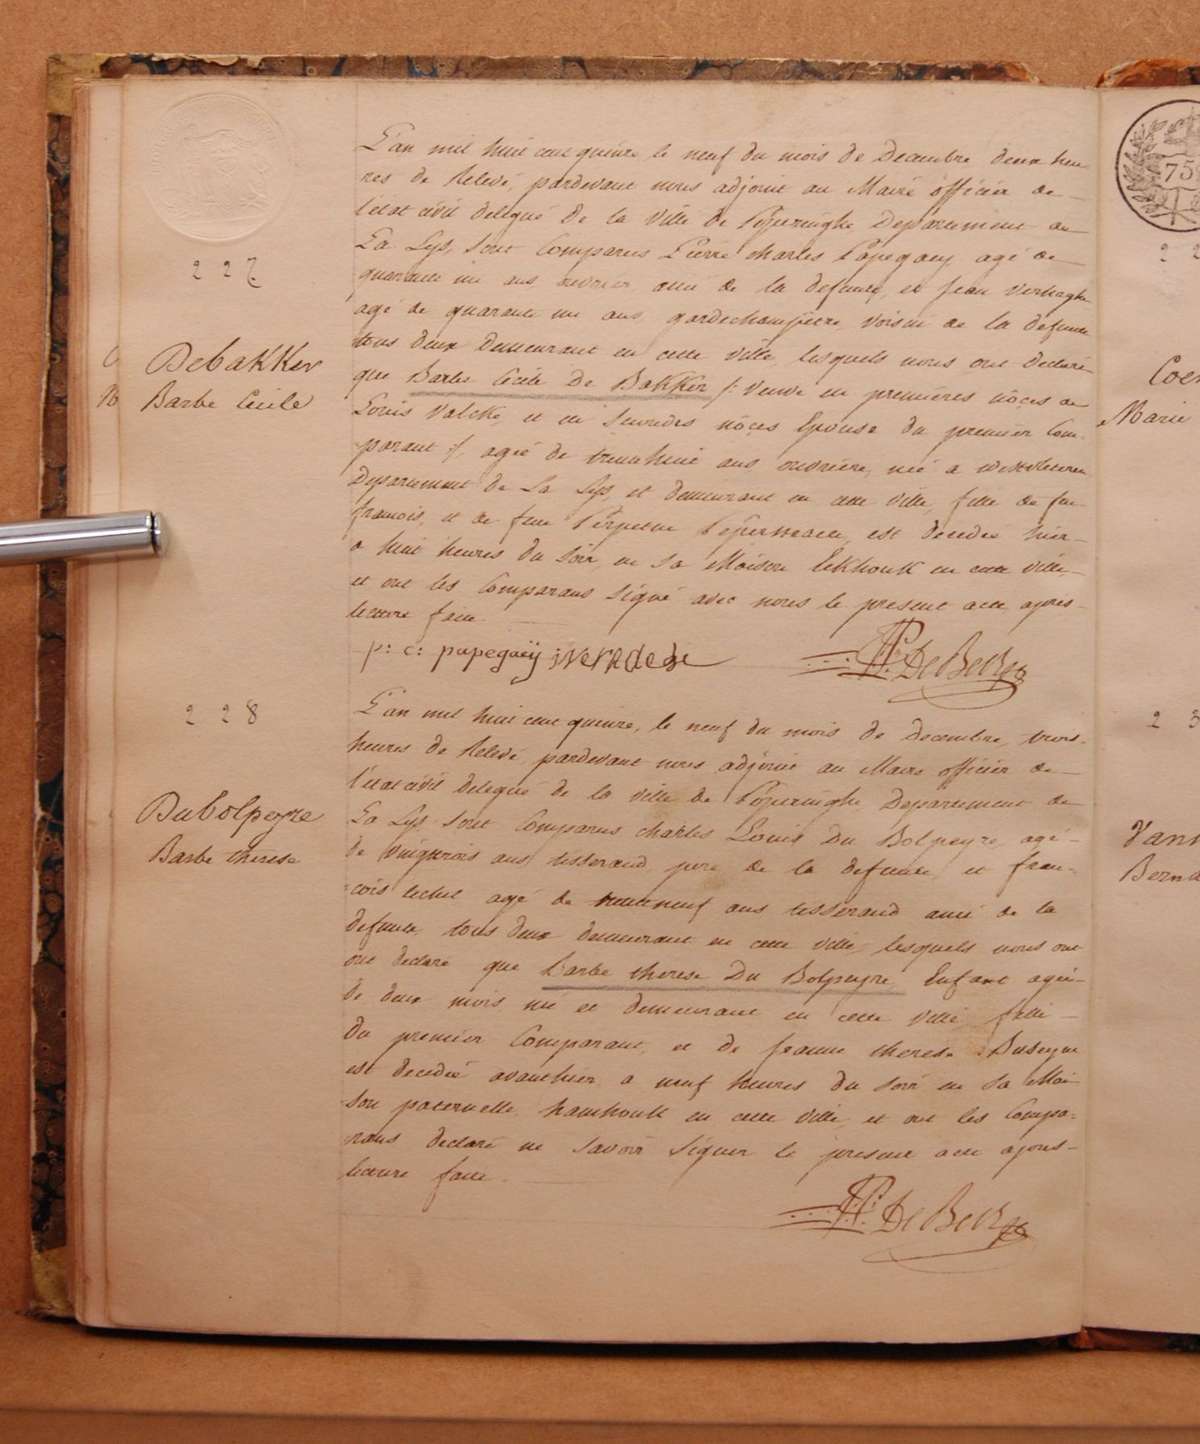 227
DeBakker
Barbe Cecile
L'an mil huit cent quinze, le neuf du mois de Decembre deux heu
res de Relevé, pardevant nous adjoint au Maire officier de
l'etat civil delegué de la Ville de Poperinghe Departement de
La Lys, sont Comparus Pierre Charles Papegaey agé de
quarante un ans ouvrier, ami de la defunte, et Jean Verhaghe
agé de quarante un ans gardechampetre Voisin de la defunte
tous deux demeurant en cette Ville, lesquels nous ont declaré
que Barbe Cecile De Bakker /: Veuve en premieres nôces de
Louis Valcke, et en secondes nôces Epouse du premier Com-
parant :/, agée de trentehuit ans ouvriere, née a Westvleteren
Departement de La Lys, et demeurant en cette Ville, fille de feu
francois, et de feue Perpetue, est decedée hier
a huit heures du soir, en sa Maison Eekhoutt en cette Ville,
et ont les Comparans signé avec nous le present acte, apres
lecture faite.
p: c: papegaeÿ
De Beer
228
Dubolpeyre
Barbe therese
L'an mil huit cent quinze, le neuf du mois de Decembre, trois
heures de Relevé, pardevant nous adjoint au Maire officier de
l'etat civil delegué de la Ville de Poperinghe Departement de
La Lys sont Comparus Charles Louis Du Bolpeyre, agé
de Vingttrois ans tisserand, pere de la defunte, et fran-
cois agé de neuf ans tisserand ami de la
defunte, tous deux demeurant en cette Ville, lesquels nous ont
ont declaré que Barbe therese Du Bolpeyre, Enfant agée
de deux mois, née et demeurant en cette Ville, fille
du premier Comparant, et de Jeanne therese
est decedée avanthier a neuf heures du soir en sa Mai
son paternelle, hamhoutt en cette Ville, et ont les Compa-
rans declaré ne savoir signer le present acte apres
lecture faite.
De Beer
75
22
Coe
Marie
23
Vann
Berna